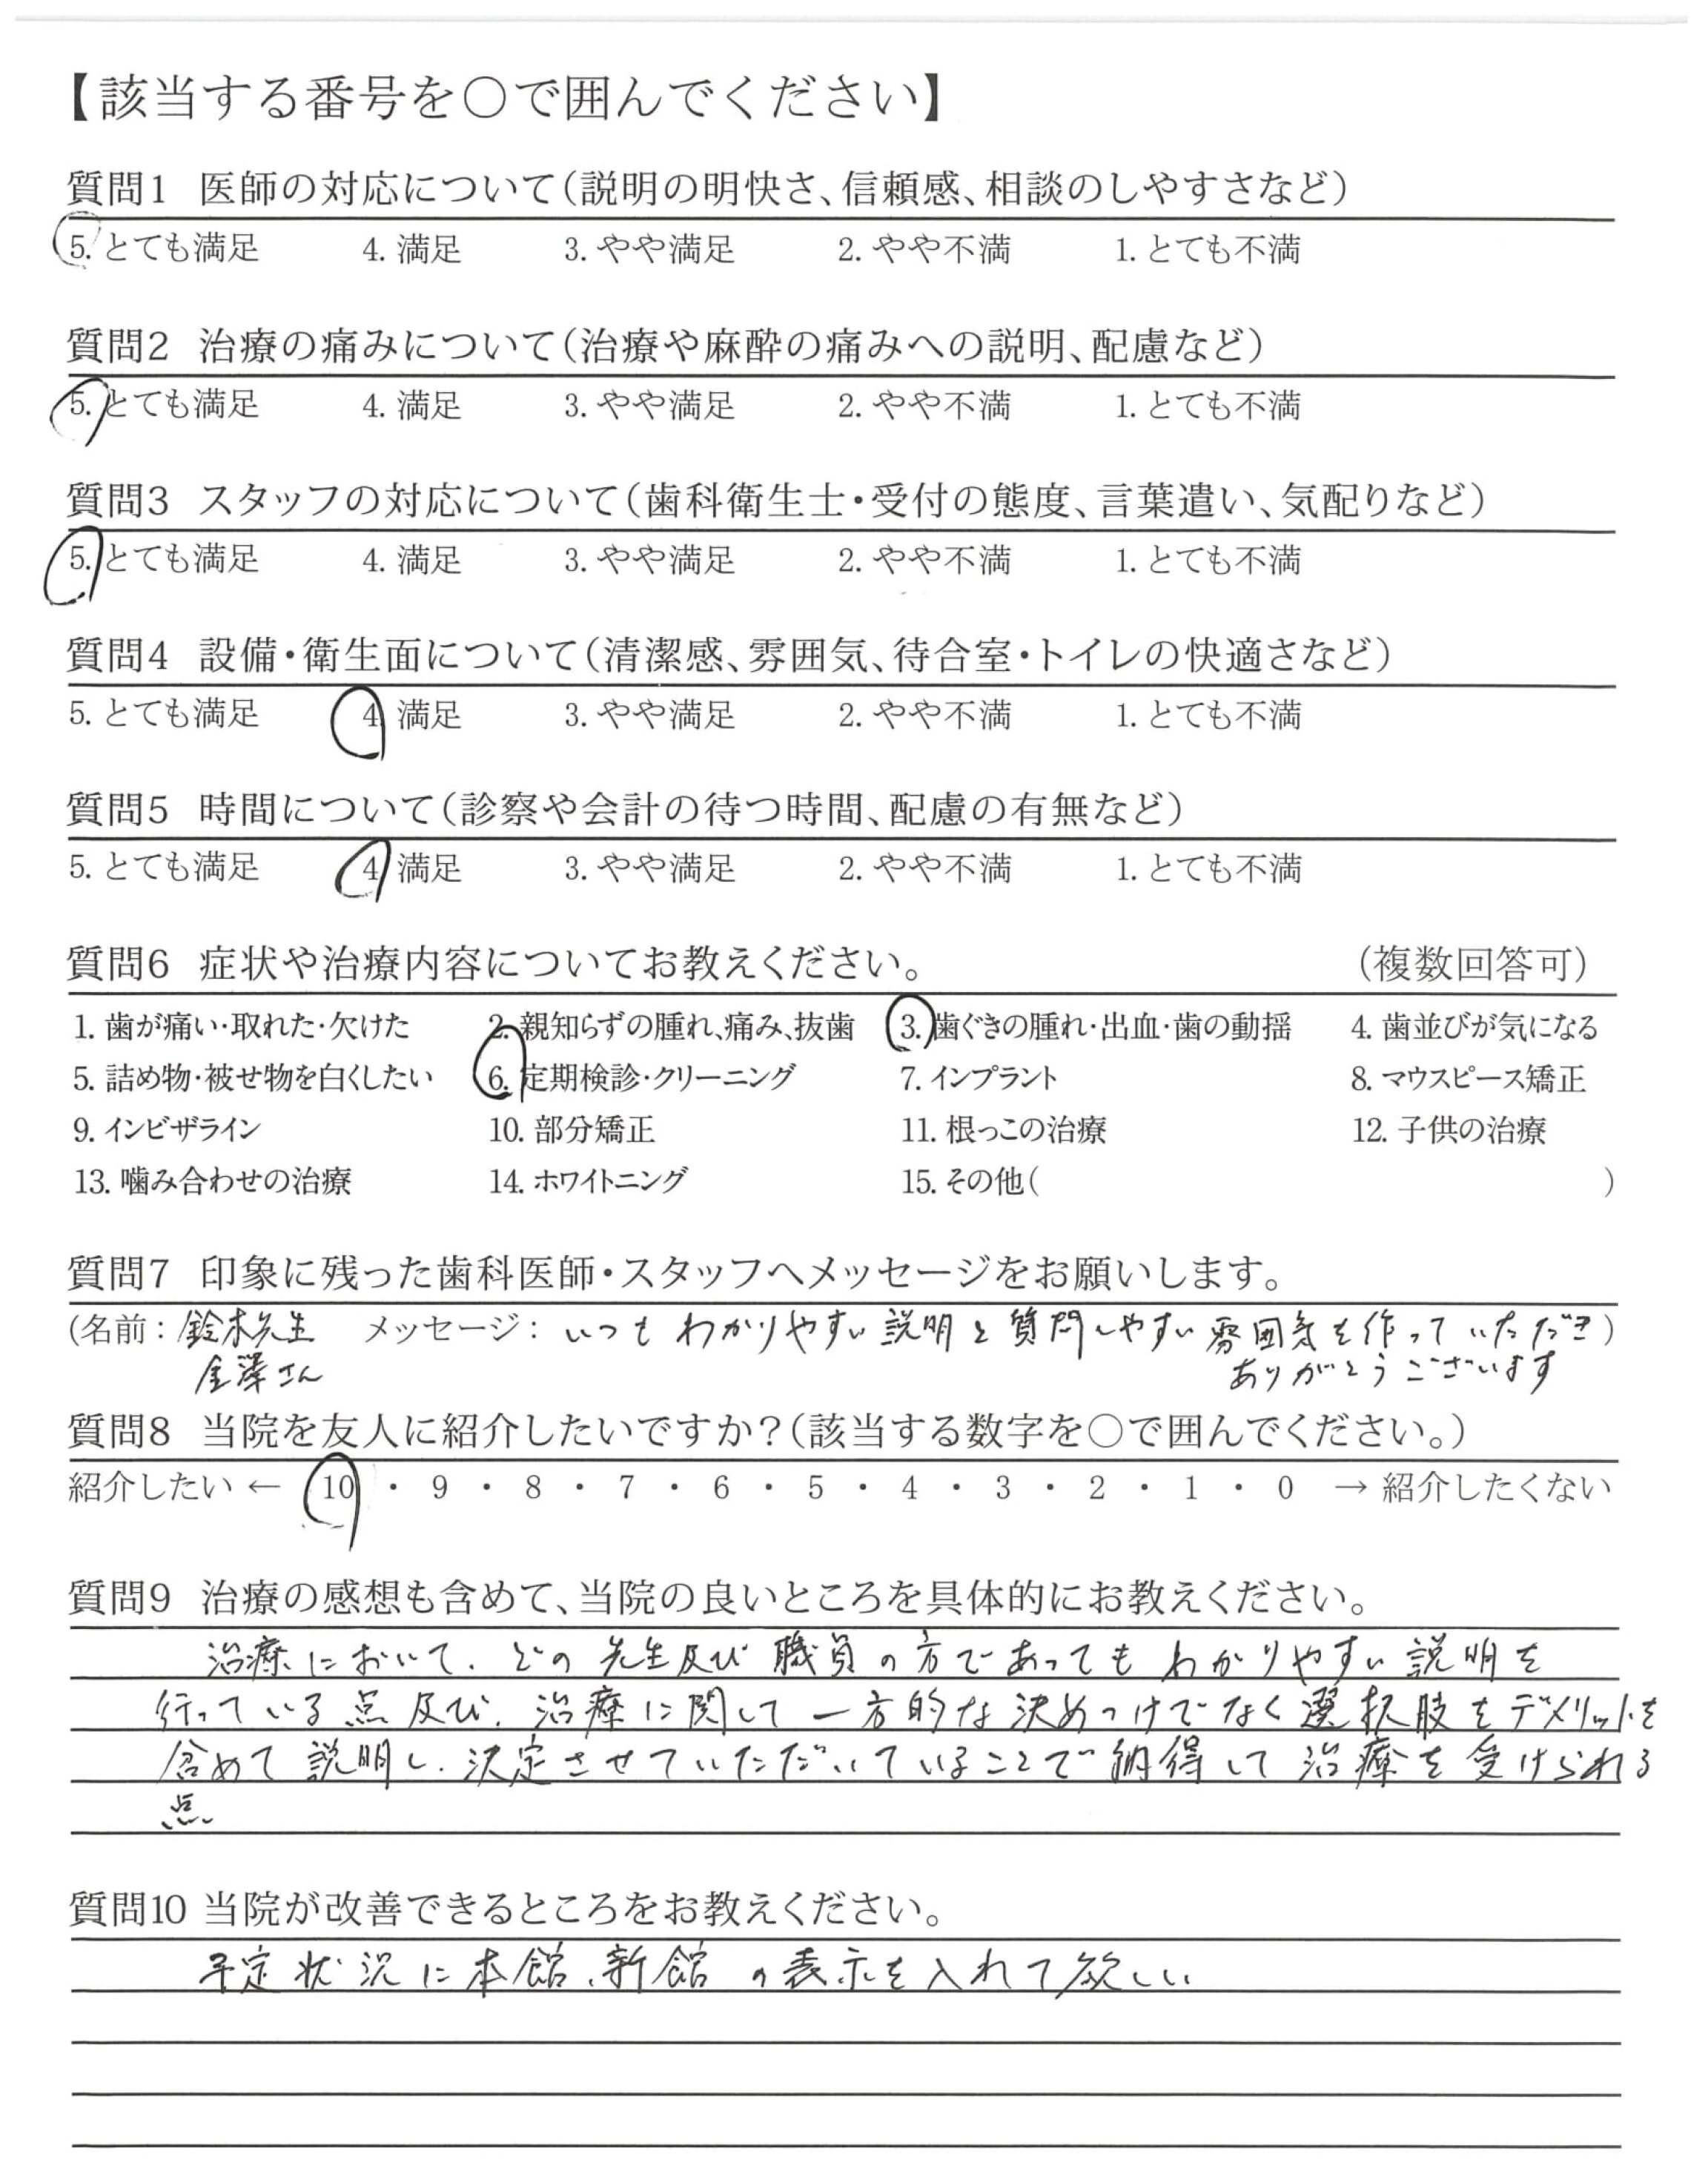 【該当する番号を○で囲んでください】
質問1 医師の対応について(説明の明快さ、信頼感、相談のしやすさなど)
5. とても満足 4. 満足 3. やや満足 2. やや不満 1. とても不満
質問2 治療の痛みについて(治療や麻酔の痛みへの説明、配慮など)
5. とても満足 4. 満足 3. やや満足 2. やや不満 1. とても不満
質問3 スタッフの対応について(歯科衛生士・受付の態度、言葉遣い、気配りなど)
5. とても満足 4. 満足 3. やや満足 2. やや不満 1. とても不満
質問4 設備・衛生面について(清潔感、雰囲気、待合室・トイレの快適さなど)
5. とても満足 4. 満足 3. やや満足 2. やや不満 1. とても不満
質問5 時間について(診察や会計の待つ時間、配慮の有無など)
5. とても満足 4. 満足 3. やや満足 2. やや不満 1. とても不満
質問6 症状や治療内容についてお教えください。 (複数回答可)
1. 歯が痛い・取れた・欠けた 2. 親知らずの腫れ、痛み、抜歯 3. 歯ぐきの腫れ・出血・歯の動揺 4. 歯並びが気になる
5. 詰め物・被せ物を白くしたい 6. 定期検診・クリーニング 7. インプラント 8. マウスピース矯正
9. インビザライン 10. 部分矯正 11. 根っこの治療 12. 子供の治療
13. 噛み合わせの治療 14. ホワイトニング 15. その他( )
質問7 印象に残った歯科医師・スタッフへメッセージをお願いします。
(名前：鈴木先生 メッセージ：いつもわかりやすい説明と質問しやすい雰囲気を作っていただき)
金澤さん ありがとうございます
質問8 当院を友人に紹介したいですか？(該当する数字を○で囲んでください。)
紹介したい ← 10 ・ 9 ・ 8 ・ 7 ・ 6 ・ 5 ・ 4 ・ 3 ・ 2 ・ 1 ・ 0 → 紹介したくない
質問9 治療の感想も含めて、当院の良いところを具体的にお教えください。
治療において、どの先生及び職員の方であってもわかりやすい説明を
行っている点及び、治療に関して一方的な決めつけでなく選択肢をデメリットを
含めて説明し、決定させていただいていることで納得して治療を受けられる
点
質問10 当院が改善できるところをお教えください。
予定状況に本館、新館の表示を入れて欲しい